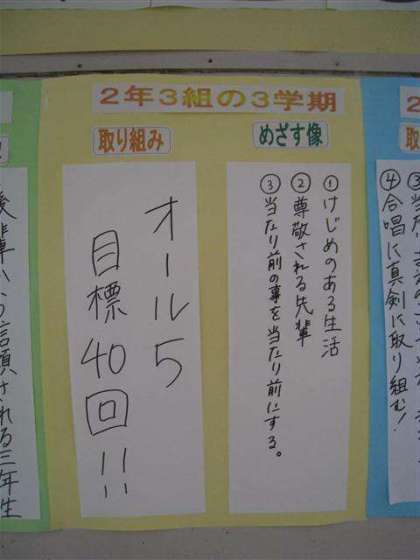 2年3組の3学期
めざす像
①けじめのある生活
②尊敬される先輩
③当たり前の事を当たり前にする。
取り組み
オール5
目標40回!!
④合唱に真剣に取り組む!
後輩から信頼される三年生